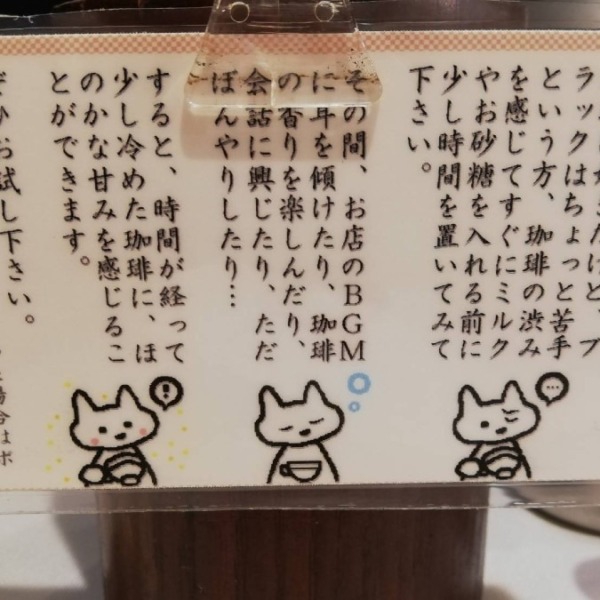 だけど、ブ
ラックはちょっと苦手
という方、珈琲の渋み
を感じてすぐにミルク
やお砂糖を入れる前に
少し時間を置いてみて
下さい。
その間、お店のBGM
に耳を傾けたり、珈琲
の香りを楽しんだり、
会話に興じたり、ただ
ぼんやりしたり…
すると、時間が経って
少し冷めた珈琲に、ほ
のかな甘みを感じるこ
とができます。
ぜひお試し下さい。
場合はポ
…
!